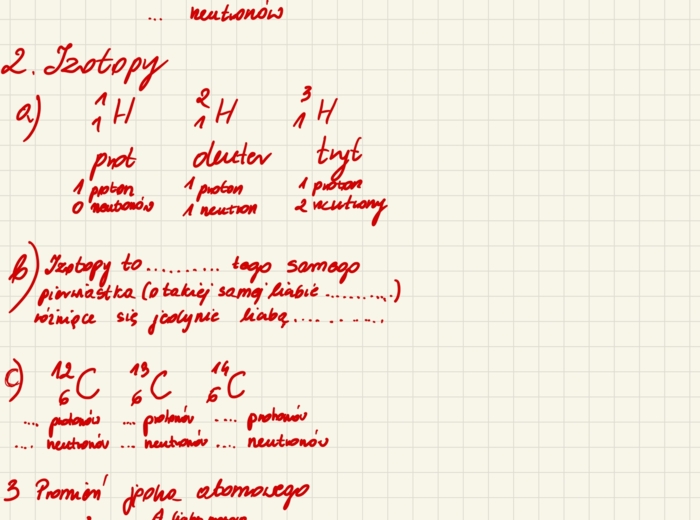 ... neutronów
2. Izotopy
a) ¹₁H ²₁H ³₁H
prot deuter tryt
1 proton 1 proton 1 proton
0 neutronów 1 neutron 2 neutrony
b) Izotopy to .......... tego samego
pierwiastka (o takiej samej liczbie ..........)
różniące się jedynie liczbą ..........
c) ¹²₆C ¹³₆C ¹⁴₆C
.... protonów ... protonów .... protonów
.... neutronów ... neutronów .... neutronów
3 Promień jądra atomowego
A liczba masowa